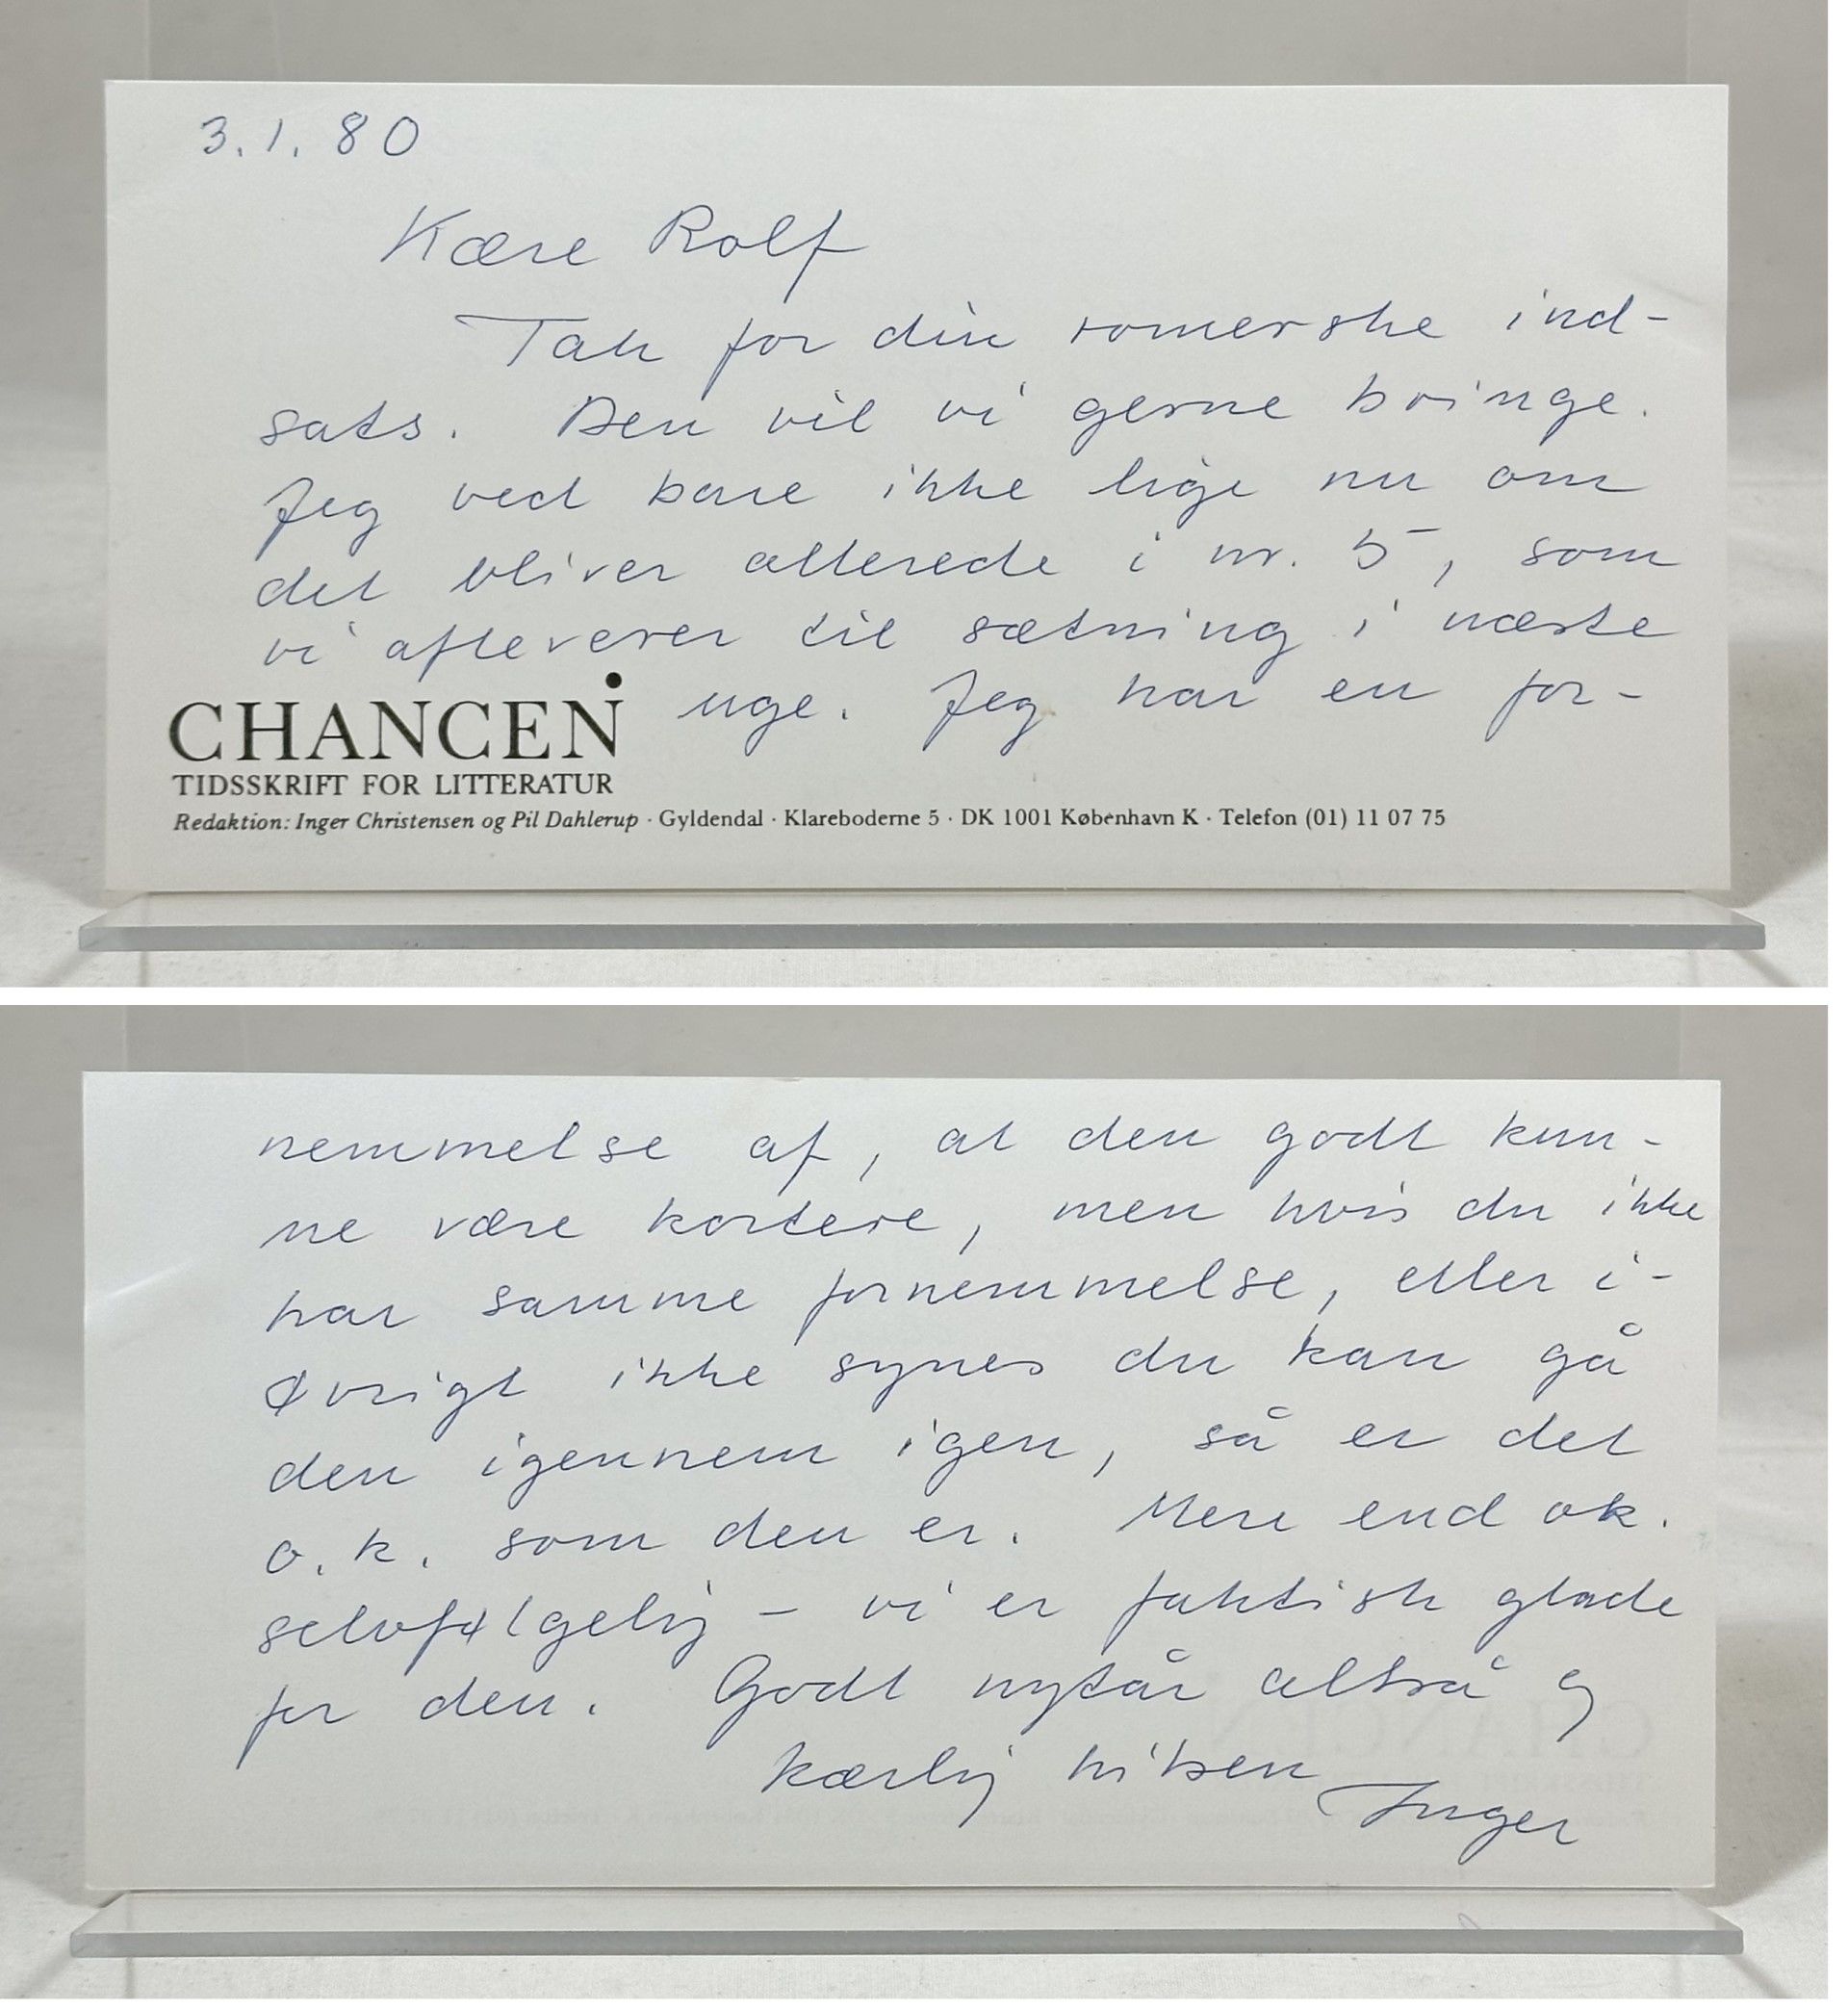 3.1.80
Kære Rolf
Tak for din romerske ind-
sats. Den vil vi gerne bringe.
Jeg ved bare ikke lige nu om
det bliver allerede i nr. 5, som
vi afleverer til sætning i næste
uge. Jeg har en for-
CHANCEN
TIDSSKRIFT FOR LITTERATUR
Redaktion: Inger Christensen og Pil Dahlerup · Gyldendal · Klareboderne 5 · DK 1001 København K · Telefon (01) 11 07 75
nemmelse af, at den godt kun-
ne være kortere, men hvis du ikke
har samme fornemmelse, eller i-
øvrigt ikke synes du kan gå
den igennem igen, så er det
o.k. som den er. Mere end ok.
selvfølgelig – vi er faktisk glade
for den. Godt nytår altså og
kærlig hilsen Inger